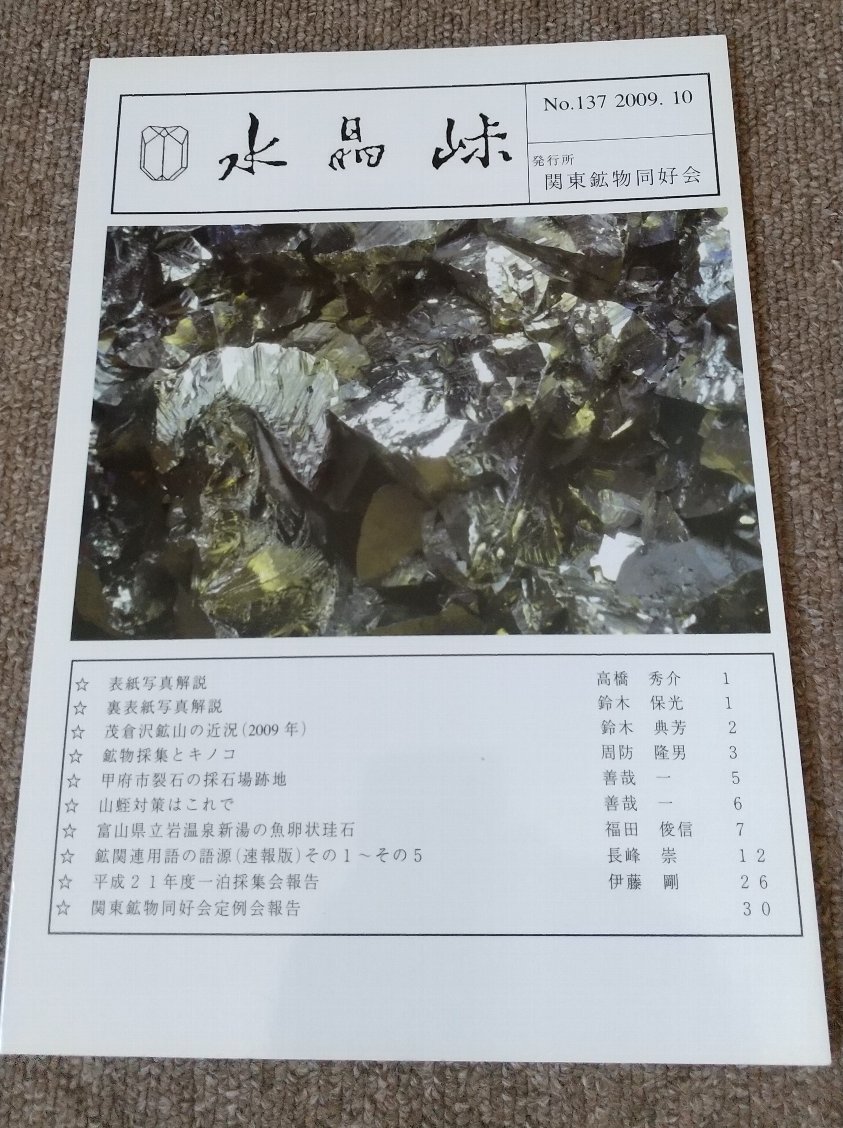 水晶峠
No.137 2009. 10
発行所
関東鉱物同好会
☆ 表紙写真解説 高橋 秀介 1
☆ 裏表紙写真解説 鈴木 保光 1
☆ 茂倉沢鉱山の近況(2009年) 鈴木 典芳 2
☆ 鉱物採集とキノコ 周防 隆男 3
☆ 甲府市裂石の採石場跡地 善哉 一 5
☆ 山蛭対策はこれで 善哉 一 6
☆ 富山県立岩温泉新湯の魚卵状珪石 福田 俊信 7
☆ 鉱関連用語の語源(速報版)その1~その5 長峰 崇 12
☆ 平成21年度一泊採集会報告 伊藤 剛 26
☆ 関東鉱物同好会定例会報告 30